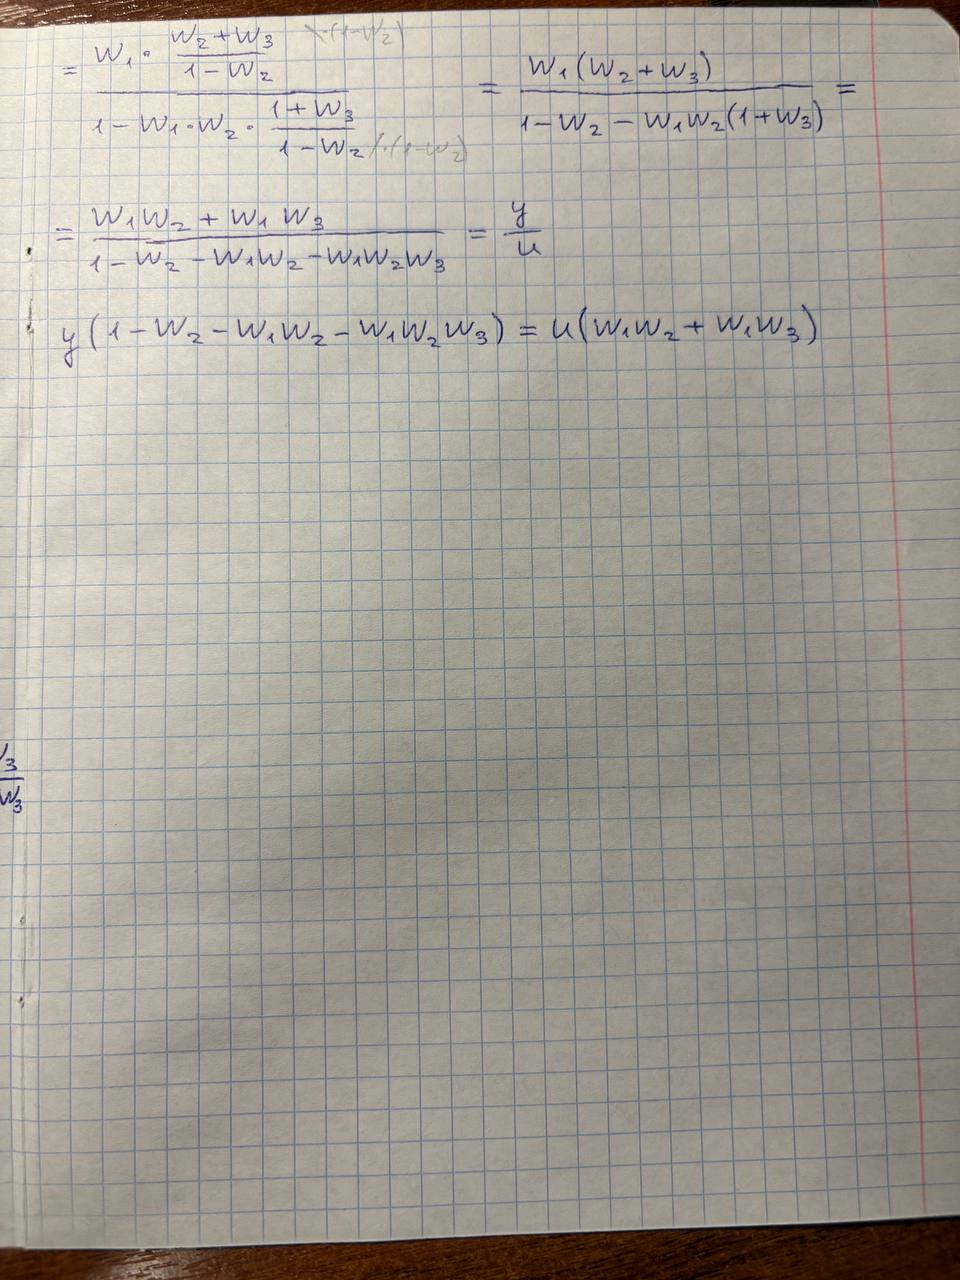 = (W₁ · (W₂ + W₃)/(1 − W₂))/(1 − W₁ · W₂ · (1 + W₃)/(1 − W₂)) = W₁(W₂ + W₃)/(1 − W₂ − W₁W₂(1 + W₃)) =
= (W₁W₂ + W₁W₃)/(1 − W₂ − W₁W₂ − W₁W₂W₃) = y/u
y(1 − W₂ − W₁W₂ − W₁W₂W₃) = u(W₁W₂ + W₁W₃)